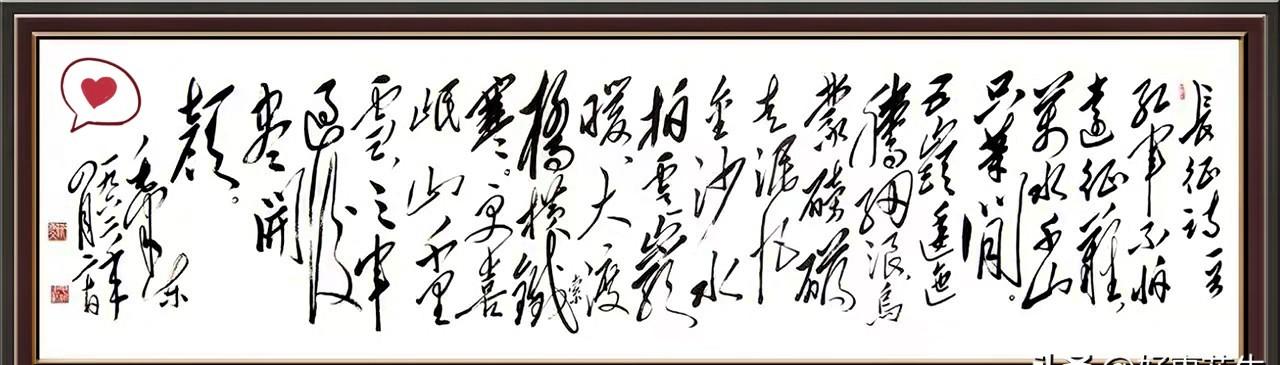 長征詩一首
紅軍不怕
遠征難,
萬水千山
只等闲。
五嶺逶迤
騰細浪,烏
蒙磅礴
走泥丸
金沙水
拍雲崖
暖,大渡
橋橫鐵索
寒。更喜
岷山千里
雪,三軍
過後
盡開
顏。
毛澤東
一九六二年
四月二十日